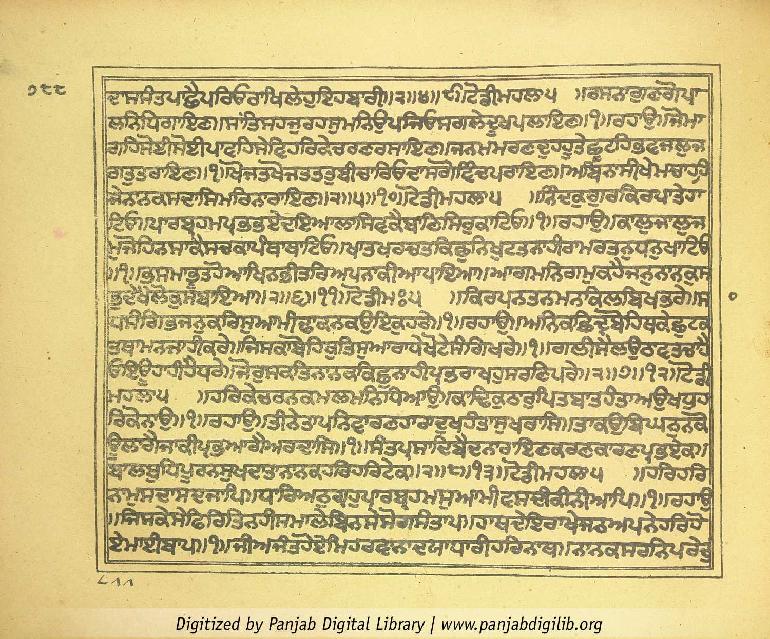 ੭੮੮
ਦਾਸ ਸੰਤ ਪਾਛੈ ਪਰਿਓ ਰਾਖਿ ਲੇਹੁ ਇਹ ਬਾਰੀ ॥੨॥੪॥੯॥ ਟੋਡੀ ਮਹਲਾ ੫ ॥ ਰਸਨਾ ਗੁਣ ਗੋਪਾ
ਲ ਨਿਧਿ ਗਾਇਣ ॥ ਸਾਂਤਿ ਸਹਜੁ ਰਹਸੁ ਮਨਿ ਉਪਜਿਓ ਸਗਲੇ ਦੂਖ ਪਲਾਇਣ ॥੧॥ ਰਹਾਉ ॥ ਜੋ ਮਾ
ਗਹਿ ਸੋਈ ਸੋਈ ਪਾਵਹਿ ਸੇਵਿ ਹਰਿ ਕੇ ਚਰਣ ਰਸਾਇਣ ॥ ਜਨਮ ਮਰਣ ਦੁਹਹੂ ਤੇ ਛੂਟਹਿ ਭਵਜਲੁ ਜ
ਗਤੁ ਤਰਾਇਣ ॥੧॥ ਖੋਜਤ ਖੋਜਤ ਤਤੁ ਬੀਚਾਰਿਓ ਦਾਸ ਗੋਵਿੰਦ ਪਰਾਇਣ ॥ ਅਬਿਨਾਸੀ ਖੇਮ ਚਾਹਹਿ
ਜੇ ਨਾਨਕ ਸਦਾ ਸਿਮਰਿ ਨਾਰਾਇਣ ॥੨॥੫॥੧੦॥ ਟੋਡੀ ਮਹਲਾ ੫ ॥ ਨਿੰਦਕੁ ਗੁਰ ਕਿਰਪਾ ਤੇ ਹਾ
ਟਿਓ ॥ ਪਾਰਬ੍ਰਹਮ ਪ੍ਰਭ ਭਏ ਦਇਆਲਾ ਸਿਵ ਕੈ ਬਾਣਿ ਸਿਰੁ ਕਾਟਿਓ ॥੧॥ ਰਹਾਉ ॥ ਕਾਲੁ ਜਾਲੁ ਜ
ਮੁ ਜੋਹਿ ਨ ਸਾਕੈ ਸਚ ਕਾ ਪੰਥਾ ਥਾਟਿਓ ॥ ਖਾਤ ਖਰਚਤ ਕਿਛੁ ਨਿਖੁਟਤ ਨਾਹੀ ਰਾਮ ਰਤਨੁ ਧਨੁ ਖਾਟਿਓ
॥੧॥ ਭਸਮਾ ਭੂਤ ਹੋਆ ਖਿਨ ਭੀਤਰਿ ਅਪਨਾ ਕੀਆ ਪਾਇਆ ॥ ਆਗਮ ਨਿਗਮੁ ਕਹੈ ਜਨੁ ਨਾਨਕੁ ਸ
ਭੁ ਦੇਖੈ ਲੋਕੁ ਸਬਾਇਆ ॥੨॥੬॥੧੧॥ ਟੋਡੀ ਮਃ ੫ ॥ ਕਿਰਪਨ ਤਨ ਮਨ ਕਿਲਵਿਖ ਭਰੇ ॥ ਸਾ
ਧਸੰਗਿ ਭਜਨੁ ਕਰਿ ਸੁਆਮੀ ਢਾਕਨ ਕਉ ਇਕੁ ਹਰੇ ॥੧॥ ਰਹਾਉ ॥ ਅਨਿਕ ਛਿਦ੍ਰ ਬੋਹਿਥ ਕੇ ਛੁਟਕ
ਤ ਥਾਮ ਨ ਜਾਹੀ ਕਰੇ ॥ ਜਿਸ ਕਾ ਬੋਹਿਥੁ ਤਿਸੁ ਆਰਾਧੇ ਖੋਟੇ ਸੰਗਿ ਖਰੇ ॥੧॥ ਗਲੀ ਸੈਲ ਉਠਾਵਤ ਚਾਹੈ
ਓਇ ਊਹਾ ਹੀ ਹੈ ਧਰੇ ॥ ਜੋਰੁ ਸਕਤਿ ਨਾਨਕ ਕਿਛੁ ਨਾਹੀ ਪ੍ਰਭ ਰਾਖਹੁ ਸਰਣਿ ਪਰੇ ॥੨॥੭॥੧੨॥ ਟੋਡੀ
ਮਹਲਾ ੫ ॥ ਹਰਿ ਕੇ ਚਰਨ ਕਮਲ ਮਨਿ ਧਿਆਉ ॥ ਕਾਢਿ ਕੁਠਾਰੁ ਪਿਤ ਬਾਤ ਹੰਤਾ ਅਉਖਧੁ ਹ
ਰਿ ਕੋ ਨਾਉ ॥੧॥ ਰਹਾਉ ॥ ਤੀਨੇ ਤਾਪ ਨਿਵਾਰਣਹਾਰਾ ਦੁਖ ਹੰਤਾ ਸੁਖ ਰਾਸਿ ॥ ਤਾ ਕਉ ਬਿਘਨੁ ਨ ਕੋ
ਊ ਲਾਗੈ ਜਾ ਕੀ ਪ੍ਰਭ ਆਗੈ ਅਰਦਾਸਿ ॥੧॥ ਸੰਤ ਪ੍ਰਸਾਦਿ ਬੈਦ ਨਾਰਾਇਣ ਕਰਣ ਕਾਰਣ ਪ੍ਰਭ ਏਕ ॥
ਬਾਲ ਬੁਧਿ ਪੂਰਨ ਸੁਖਦਾਤਾ ਨਾਨਕ ਹਰਿ ਹਰਿ ਟੇਕ ॥੨॥੮॥੧੩॥ ਟੋਡੀ ਮਹਲਾ ੫ ॥ ਹਰਿ ਹਰਿ
ਨਾਮੁ ਸਦਾ ਸਦ ਜਾਪਿ ॥ ਧਾਰਿ ਅਨੁਗ੍ਰਹੁ ਪਾਰਬ੍ਰਹਮ ਸੁਆਮੀ ਵਸਦੀ ਕੀਨੀ ਆਪਿ ॥੧॥ ਰਹਾਉ
॥ ਜਿਸ ਕੇ ਸੇ ਫਿਰਿ ਤਿਨ ਹੀ ਸਮਾਲੇ ਬਿਨਸੇ ਸੋਗ ਸੰਤਾਪ ॥ ਹਾਥ ਦੇਇ ਰਾਖੇ ਜਨ ਅਪਨੇ ਹਰਿ ਹੋ
ਏ ਮਾਈ ਬਾਪ ॥੧॥ ਜੀਅ ਜੰਤ ਹੋਏ ਮਿਹਰਵਾਨਾ ਦਯਾ ਧਾਰੀ ਹਰਿ ਨਾਥ ॥ ਨਾਨਕ ਸਰਨਿ ਪਰੇ ਦੁ
Digitized by Panjab Digital Library | www.panjabdigilib.org